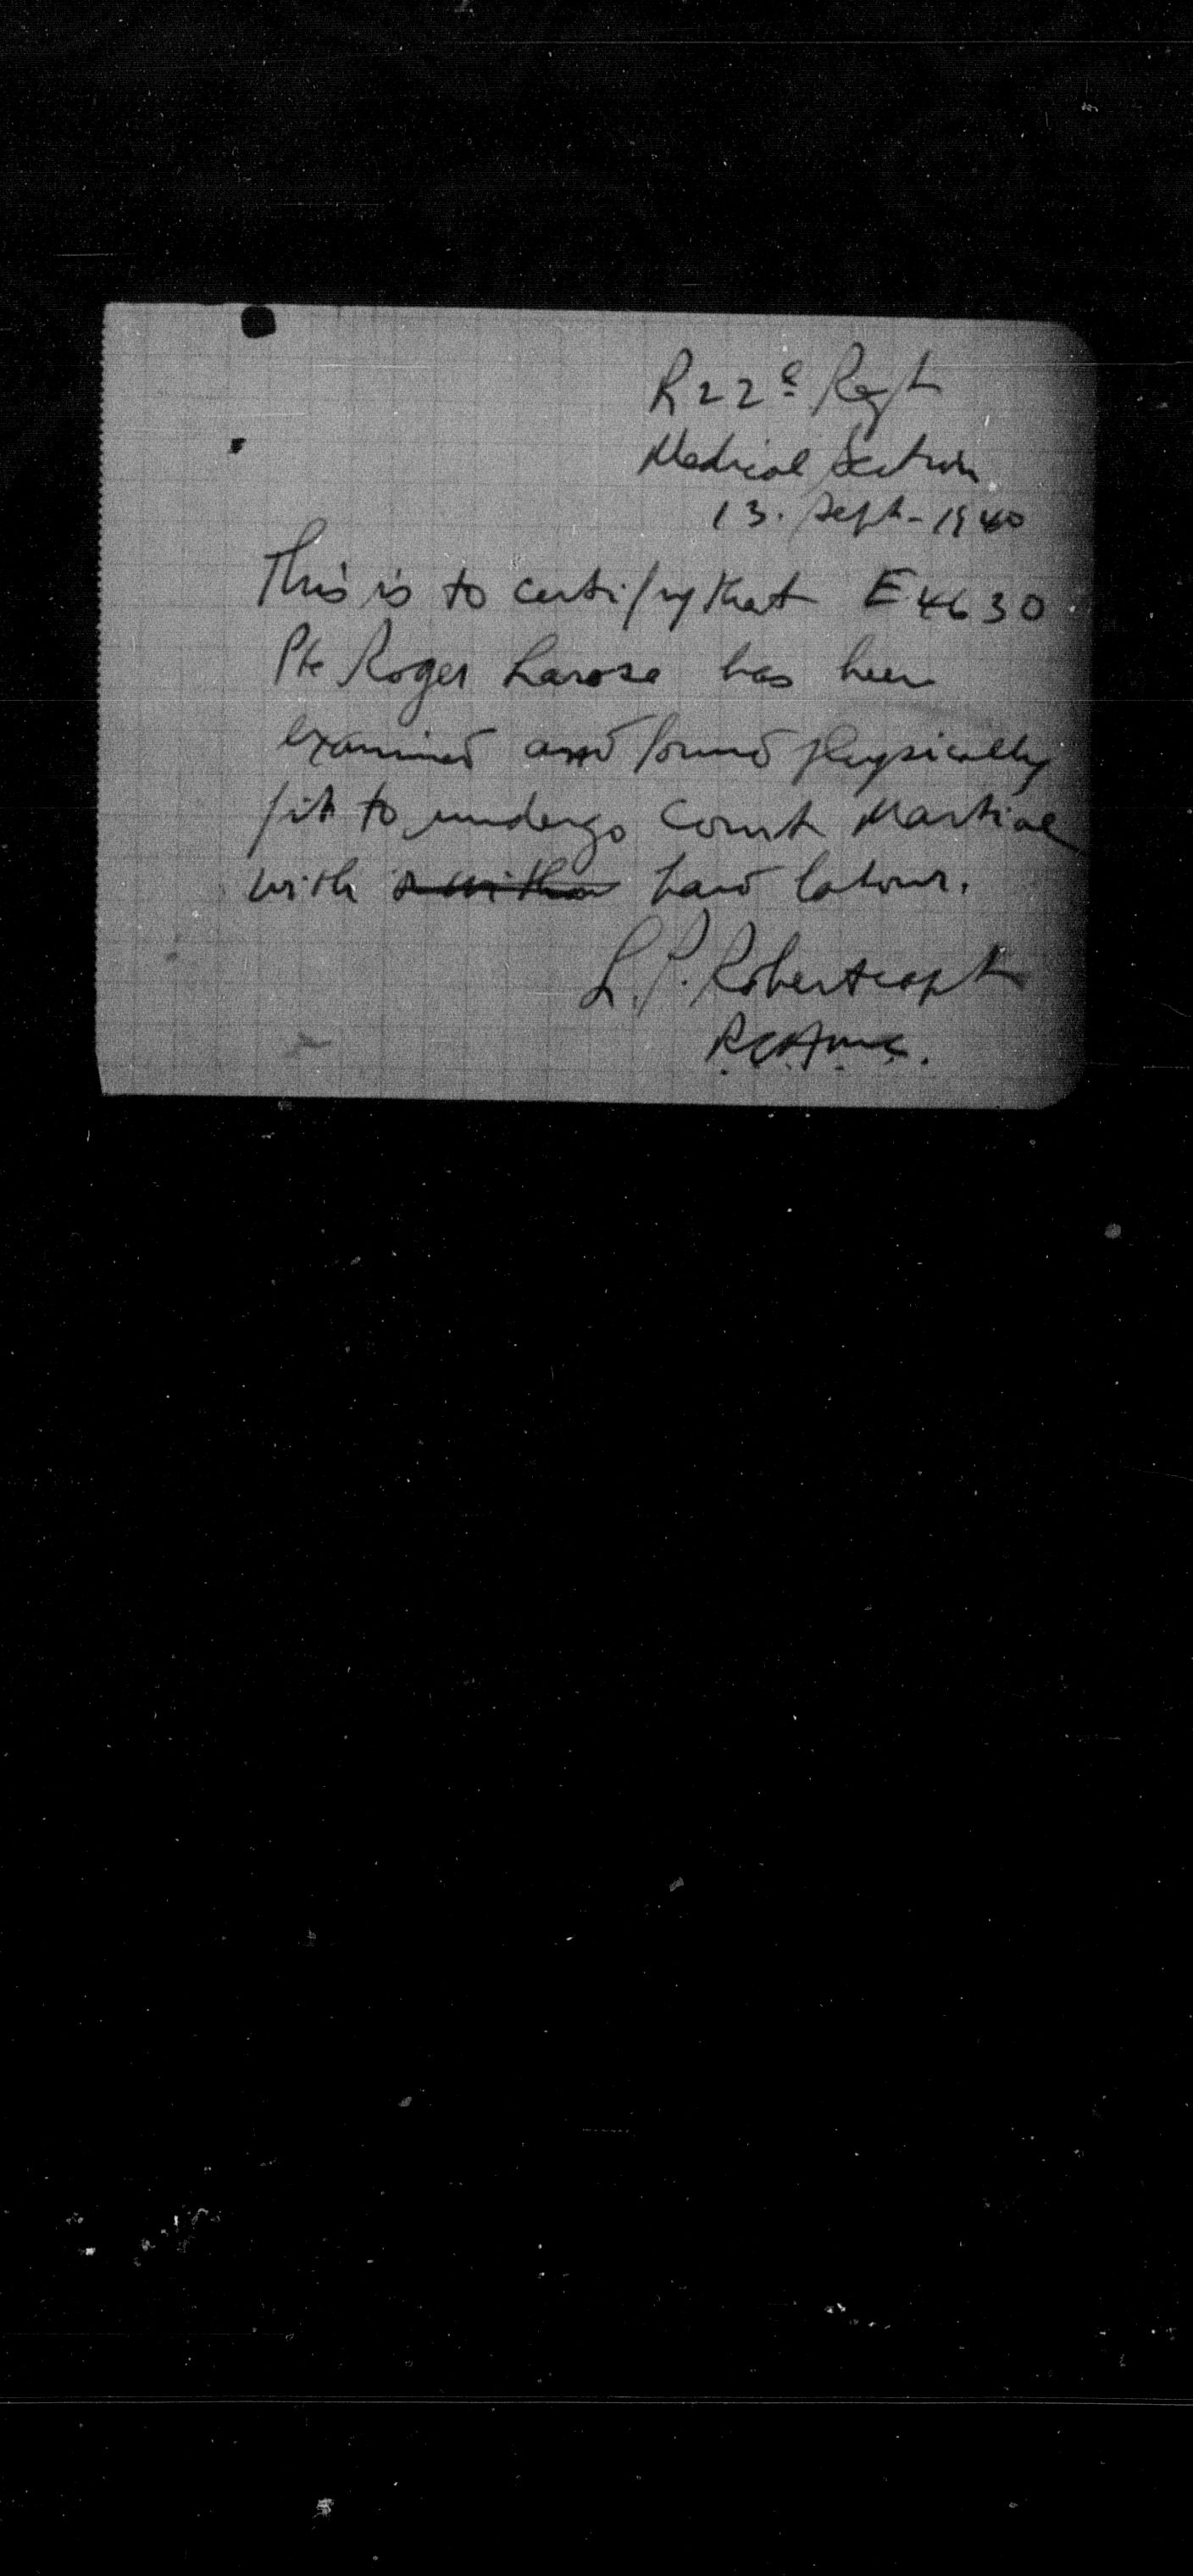 R 22e Regt
Medical Section
13. Sept - 1940
This is to certify that E4630
Pte Roger Larose has been
examined and found physically
fit to undergo Court Martial
with hard labour.
L. P. Robert capt
R.C.A.M.C.